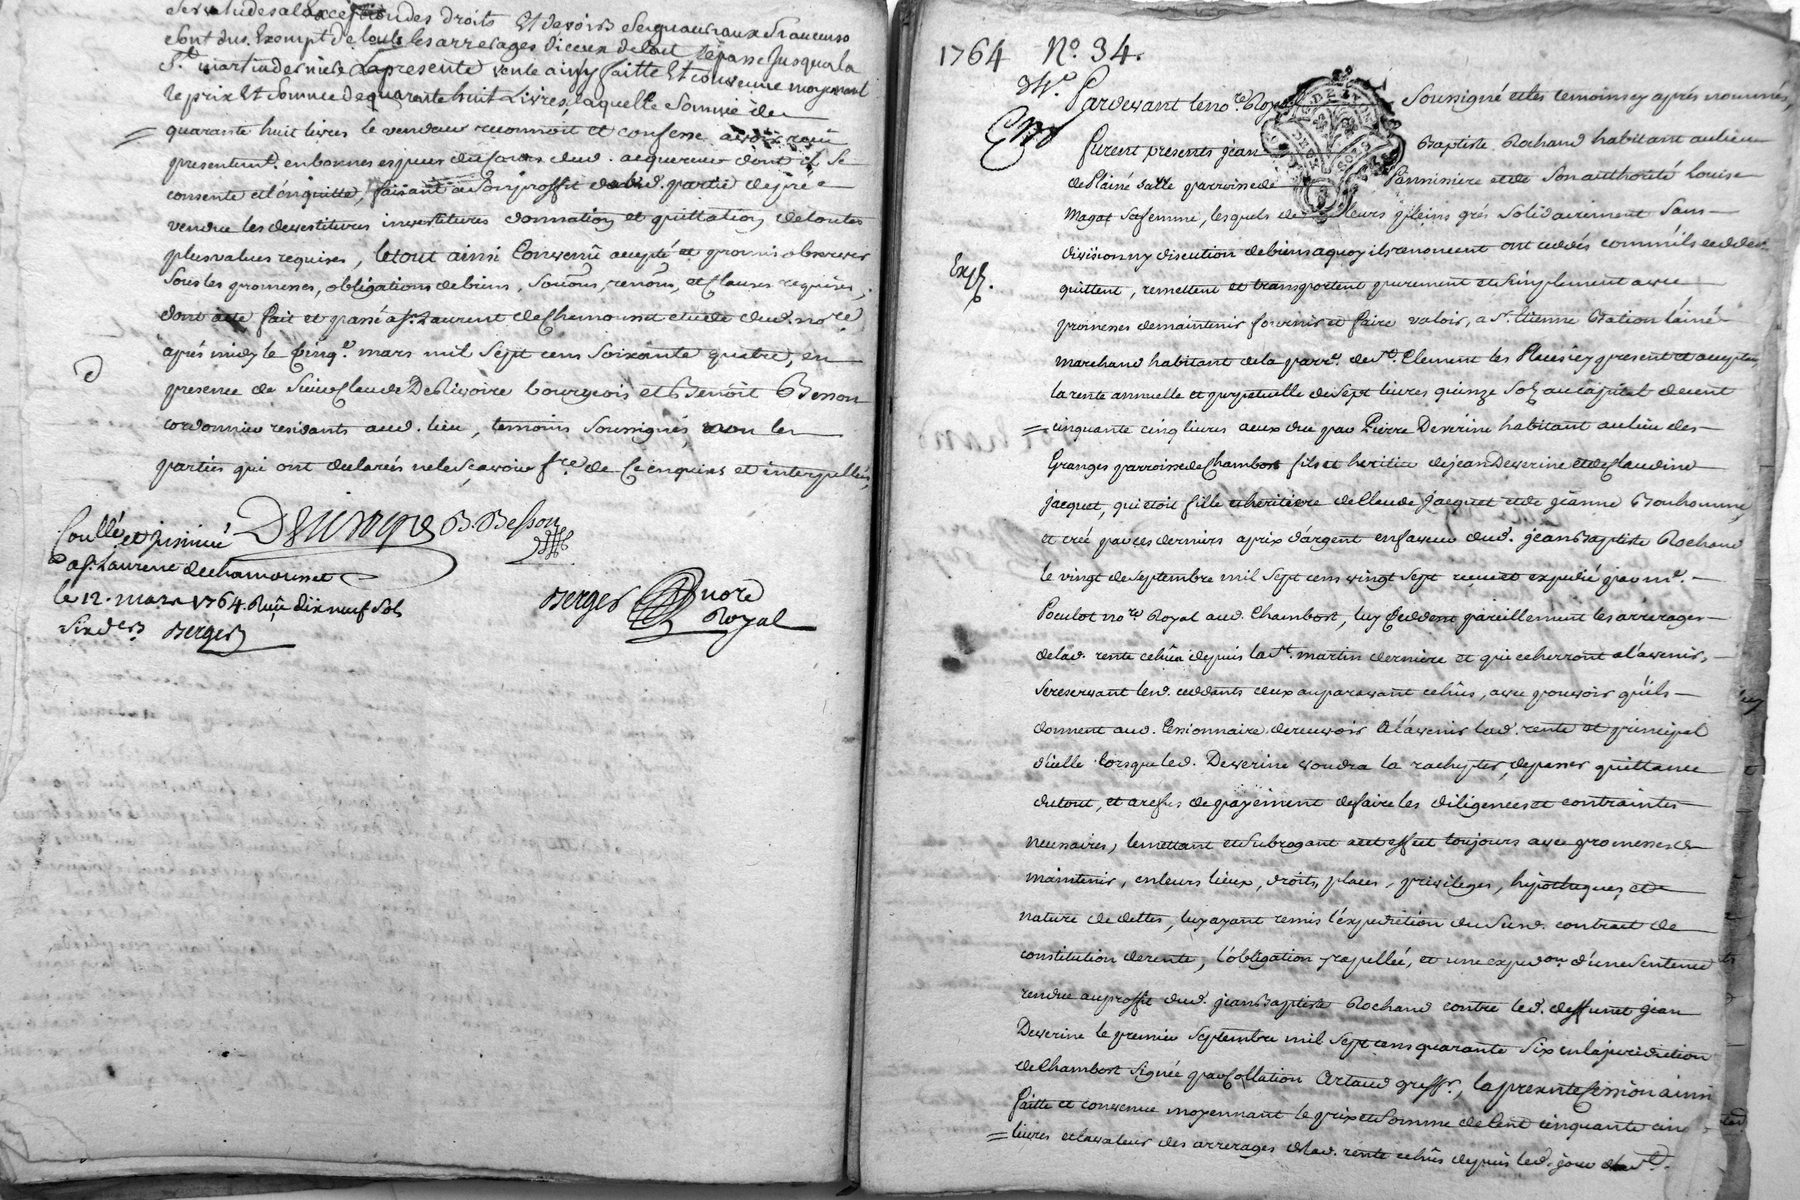 servitudes a la exception des droits Et devoirs Seigneuriaux
Sont dus. Exempt de touts les arrerages diceux de tout Le passé Jusqua la
St. martin derniere La presente vente ainsy faitte Et convenue moyenant
le prix Et Somme de quarante huit Livres, laquelle Somme de
quarante huit livres le vendeur reconnoit et confesse avoir reçu
presentemt. en bonnes especes du cours dud. acquereur dont il se
contente et l'en quitte, faisant au Sien proffit dud. partie de pré
vendue les devestitures investitures donnation et quittation de toutes
plus values requises, le tout ainsi Convenû accepté et promis observer
Sous les promesses, obligations de biens, Soûons, renons, et Clauses requises,
dont acte fait et passé a St. Laurent de Chamousset etude dud. nore
après midy le Cinqe. mars mil Sept cens Soixante quatre, en
presence de Sieur Claude DeRivoire bourgeois et Benoît Besson
cordonnier residants aud. lieu, temoins Soussignés, non les
parties qui ont declarés ne le Sçavoir fre. de Ce enquises et interpellées,
B. Besson
Coullé et insinué
a St. Laurent de chamousset
le 12. mars 1764. Reçu dix neuf Sols
Six ders Berger
Berger nore
Royal
1764 No. 34.
Pardevant le nore. Royal Soussigné et les temoins cy après nommés,
furent presents jean Baptiste Rochand habitant au lieu
de Plainé parroisse de Pannissiere et de Son authorité Louise
Magat Sa femme, lesquels de leurs pleins grés Solidairement Sans
division ny discution de biens a quoy ils renoncent ont ceddés comm'ils ceddent
Exp.
quittent, remettent et transportent purement et Simplement avec
promesses de maintenir fournir et faire valoir, a Sr. Etienne Bation l'ainé
marchand habitant de la parre. de St. Clement les Places icy present et acceptant
la rente annuelle et perpetuelle de Sept livres quinze Sols au capital de cent
cinquante cinq livres a eux due par Pierre Deverine habitant au lieu des
Granges parroisse de Chambost fils et heritier de jean Deverine et de Claudine
jacquet, qui etoit fille et heritiere de Claude jacquet et de jeanne Bonhomme,
et créé par ces derniers a prix d'argent en faveur dud. jean Baptiste Rochand
le vingt de Septembre mil Sept cens vingt Sept receu et expedié par me.
Poculot nore Royal aud. Chambost, luy Ceddent pareillement les arrerages
de lad. rente echûs depuis la St. martin derniere et qui echerront a l'avenir,
Se reservant lesd. ceddants ceux auparavant echûs, avec pouvoir qu'ils
donnent aud. Cessionnaire de recevoir a l'avenir lad. rente et principal
d'icelle lorsque led. Deverine voudra la rachepter, de passer quittance
du tout, et a refus de payement de faire les diligences et contraintes
necessaires, le mettant et Subrogant a cet effect toujours avec promesses de
maintenir, en leurs lieux, droits, places, privileges, hipotheques, et
nature de dettes, luy ayant remis l'expedition du Susd. contract de
constitution de rente, l'obligation rapellée, et une expedon d'une Sentence
rendue au proffit dud. jean Baptiste Rochand contre led. deffunct jean
Deverine le premier Septembre mil Sept cens quarante Six en la juridiction
de Chambost Signée par Collation Artaud greffr., la presente Cession ainsi
faitte et convenue moyennant le prix et Somme de Cent cinquante cinq
livres et la valeur des arrerages de lad. rente echûs depuis led. jour de la St.